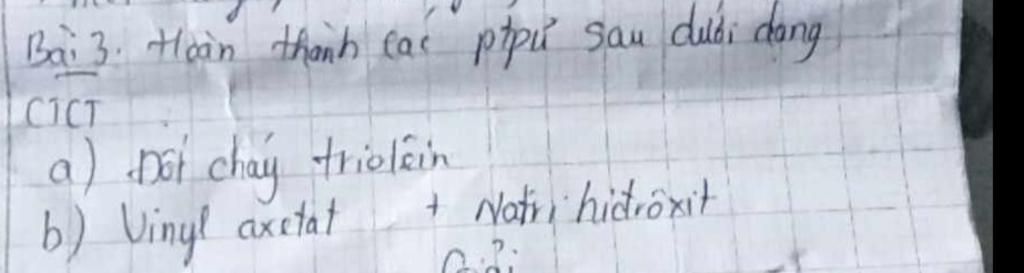 Bài 3. Hoàn thành các ptpứ sau dưới dạng
CTCT
a) Đốt cháy triolêin
b) Vinyl axetat + Natri hiđrôxit
Giải